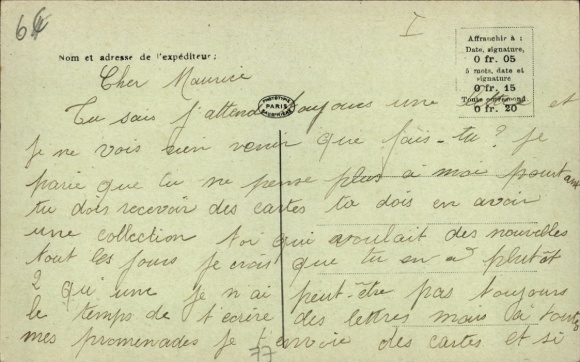 64
I
Affranchir à :
Date, signature,
0 fr. 05
5 mots, date et
signature
0 fr. 15
Toute correspond
0 fr. 20
Nom et adresse de l'expéditeur :
Cher Maurice
PARIS
Tu sais j'attend toujours une et
je ne vois rien venir que fais-tu? Je
parie que tu ne pense plus a moi pourtant
tu dois recevoir des cartes tu dois en avoir
une collection toi qui avoulait des nouvelles
tout les jours je crois que tu en a plutôt
2 qu'une je n'ai peut-être pas toujours
le temps de t'écrire des lettres mais a toute
mes promenades je t'envoie des cartes et si
77